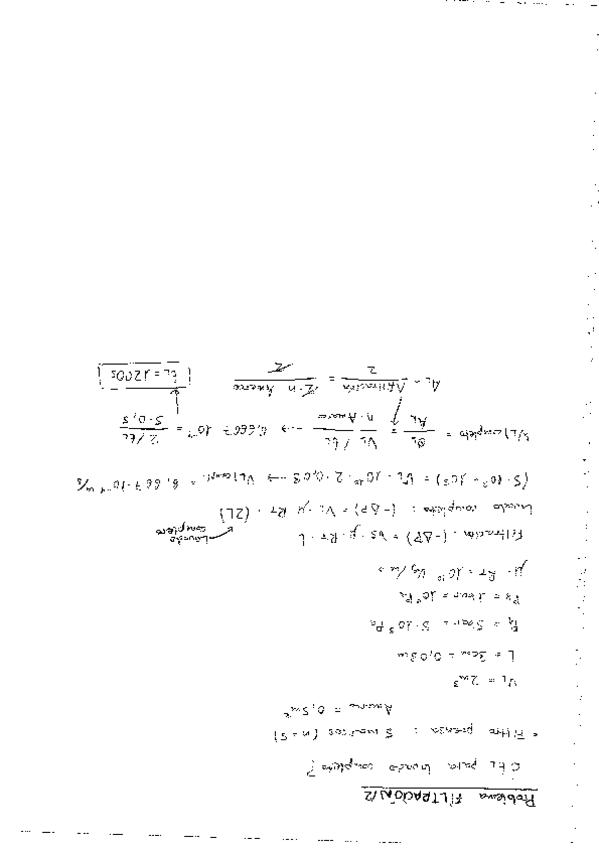 Problema FILTRACIÓN/2
¿ tL para lavado completo?
• Filtro prensa : 5 marcos (n=5)
Amarco = 0,5m²
VL = 2m³
L = 3cm = 0,03m
P₁ = 5bar = 5·10⁵ Pa
P₂ = 1bar = 10⁵ Pa
μ · RT = 10¹⁰ kg/
Filtración : (-ΔP) = vs · μ · RT · L
Lavado completo : (-ΔP) = VL · μ · RT · (2L)
Lavado completo
(5·10⁵ - 10⁵) = VL · 10¹⁰ · 2 · 0,03 → VL)compl. = 6,667·10⁻⁴ m/s
VL)completo = QL / AL = VL / tL / n·Amarco → 6,667·10⁻⁴ = 2/tL / 5·0,5
AL = Afiltración / 2 = 2·n·Amarco / 2
tL = 1200s